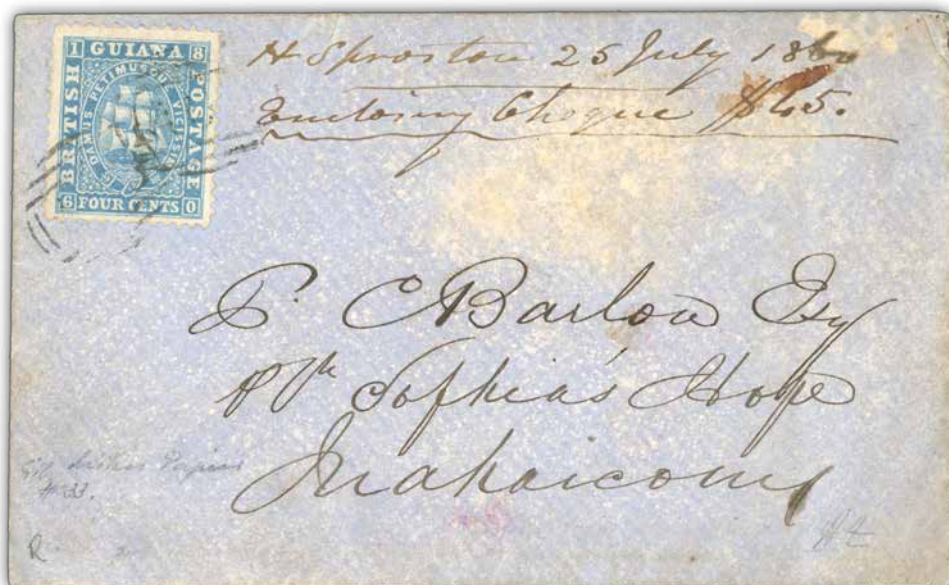 1 GUIANA 8
BRITISH
POSTAGE
DAMUS PETIMUSQUE VICISSIM
6 FOUR CENTS 0
H Sproston 25 July 186
Enclosing Cheque $45.
C Barlow Esq
Sophia's Hope
Mahaicony